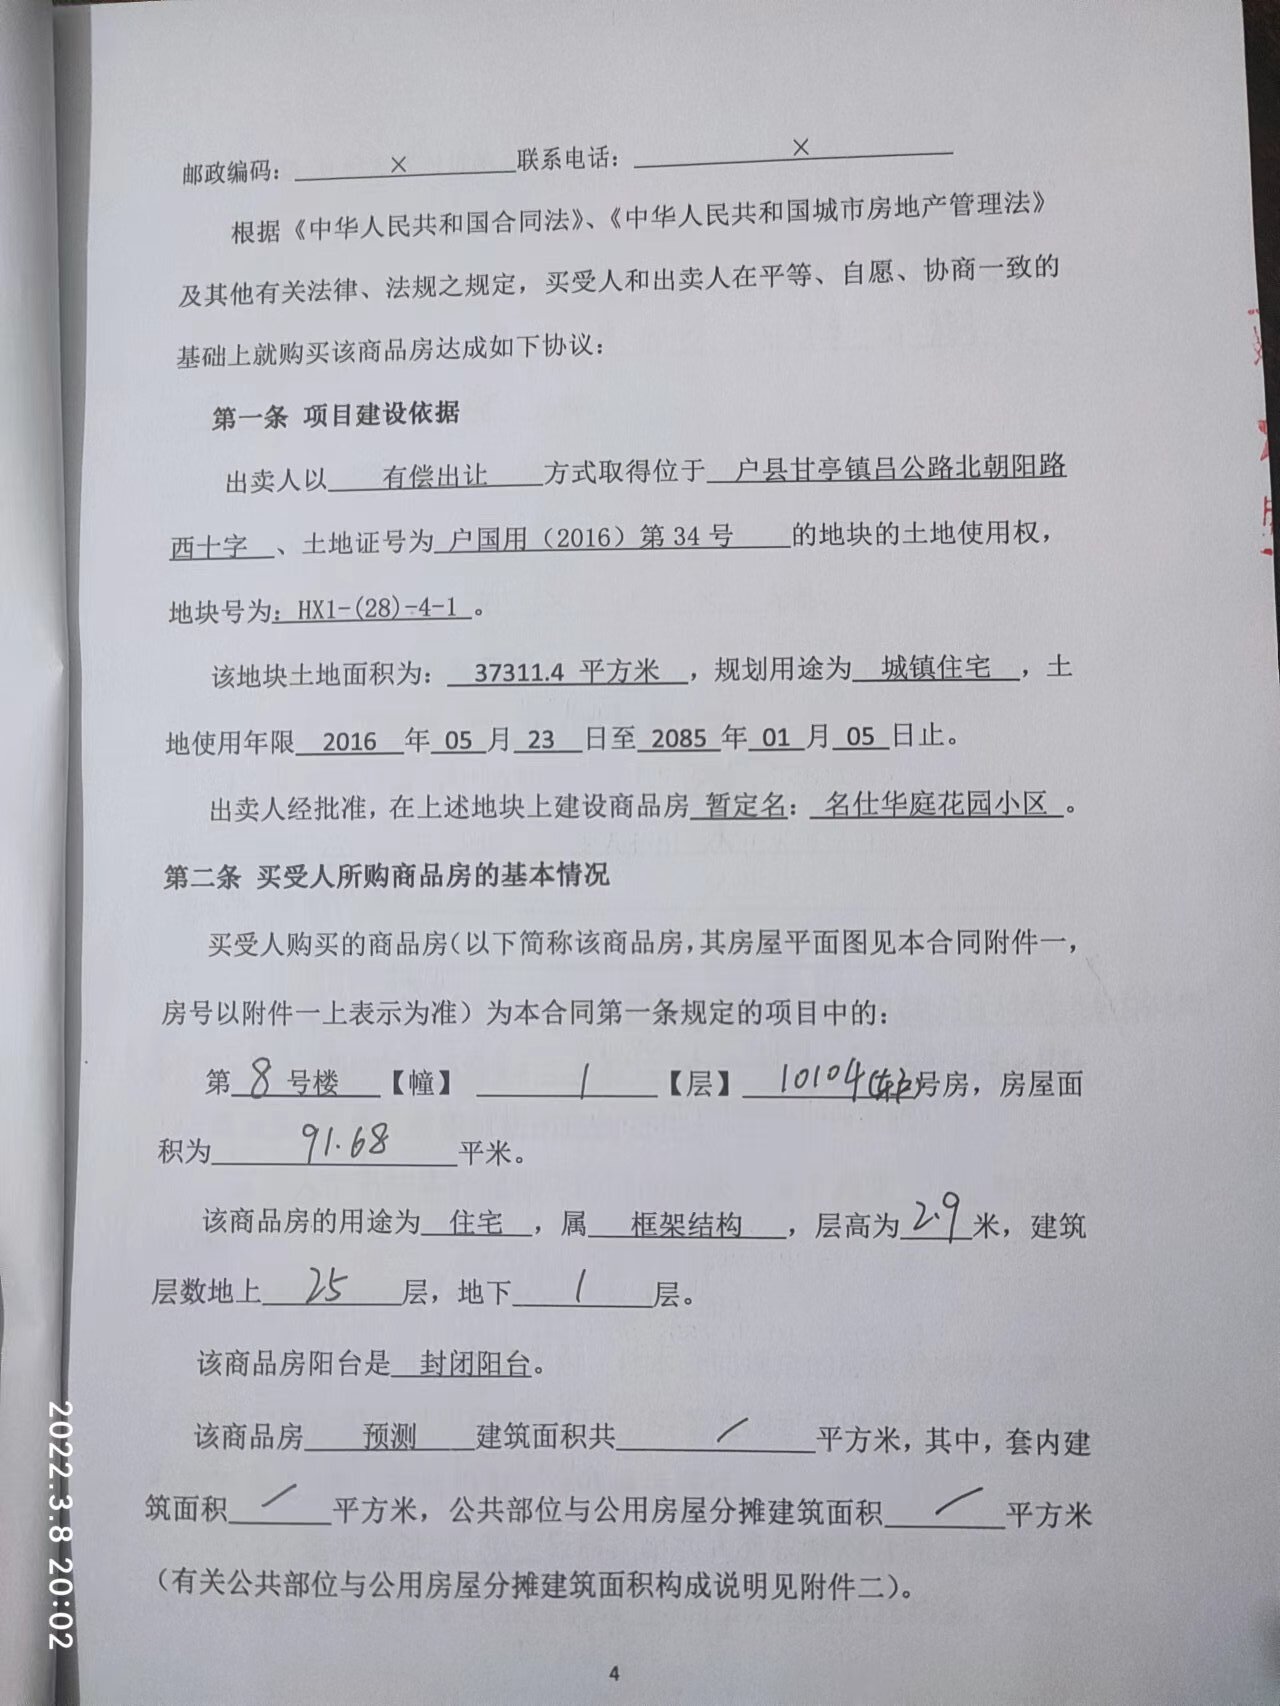 邮政编码：×联系电话：×
根据《中华人民共和国合同法》、《中华人民共和国城市房地产管理法》
及其他有关法律、法规之规定，买受人和出卖人在平等、自愿、协商一致的
基础上就购买该商品房达成如下协议：
第一条 项目建设依据
出卖人以 有偿出让 方式取得位于 户县甘亭镇吕公路北朝阳路
西十字 、土地证号为 户国用（2016）第 34 号 的地块的土地使用权，
地块号为：HX1-(28)-4-1 。
该地块土地面积为： 37311.4 平方米 ，规划用途为 城镇住宅 ，土
地使用年限 2016 年 05 月 23 日至 2085 年 01 月 05 日止。
出卖人经批准，在上述地块上建设商品房 暂定名： 名仕华庭花园小区 。
第二条 买受人所购商品房的基本情况
买受人购买的商品房（以下简称该商品房，其房屋平面图见本合同附件一，
房号以附件一上表示为准）为本合同第一条规定的项目中的：
第 8 号楼 【幢】 1 【层】 10104(东户)号房，房屋面
积为 91.68 平米。
该商品房的用途为 住宅 ，属 框架结构 ，层高为 2.9 米，建筑
层数地上 25 层，地下 1 层。
该商品房阳台是 封闭阳台。
该商品房 预测 建筑面积共 / 平方米，其中，套内建
筑面积 / 平方米，公共部位与公用房屋分摊建筑面积 / 平方米
（有关公共部位与公用房屋分摊建筑面积构成说明见附件二）。
4
2022.3.8 20:02